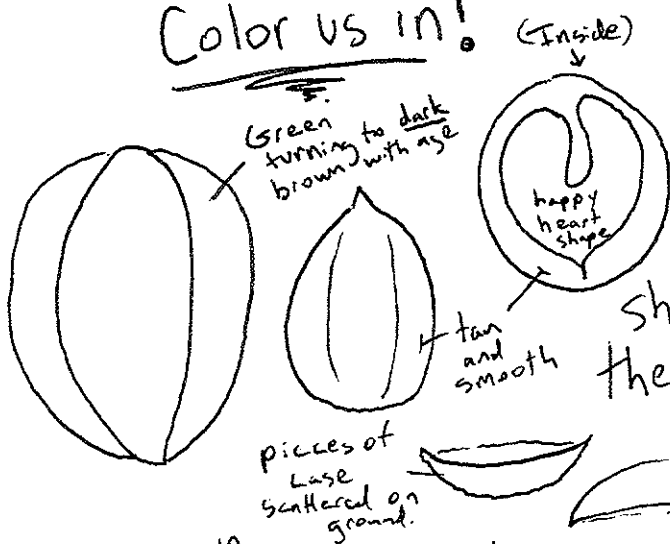 Color us in!
(Inside)
Green
turning to dark
brown with age
happy
heart
shape
tan
and
smooth
sh
the
pieces of
case
scattered on
ground.